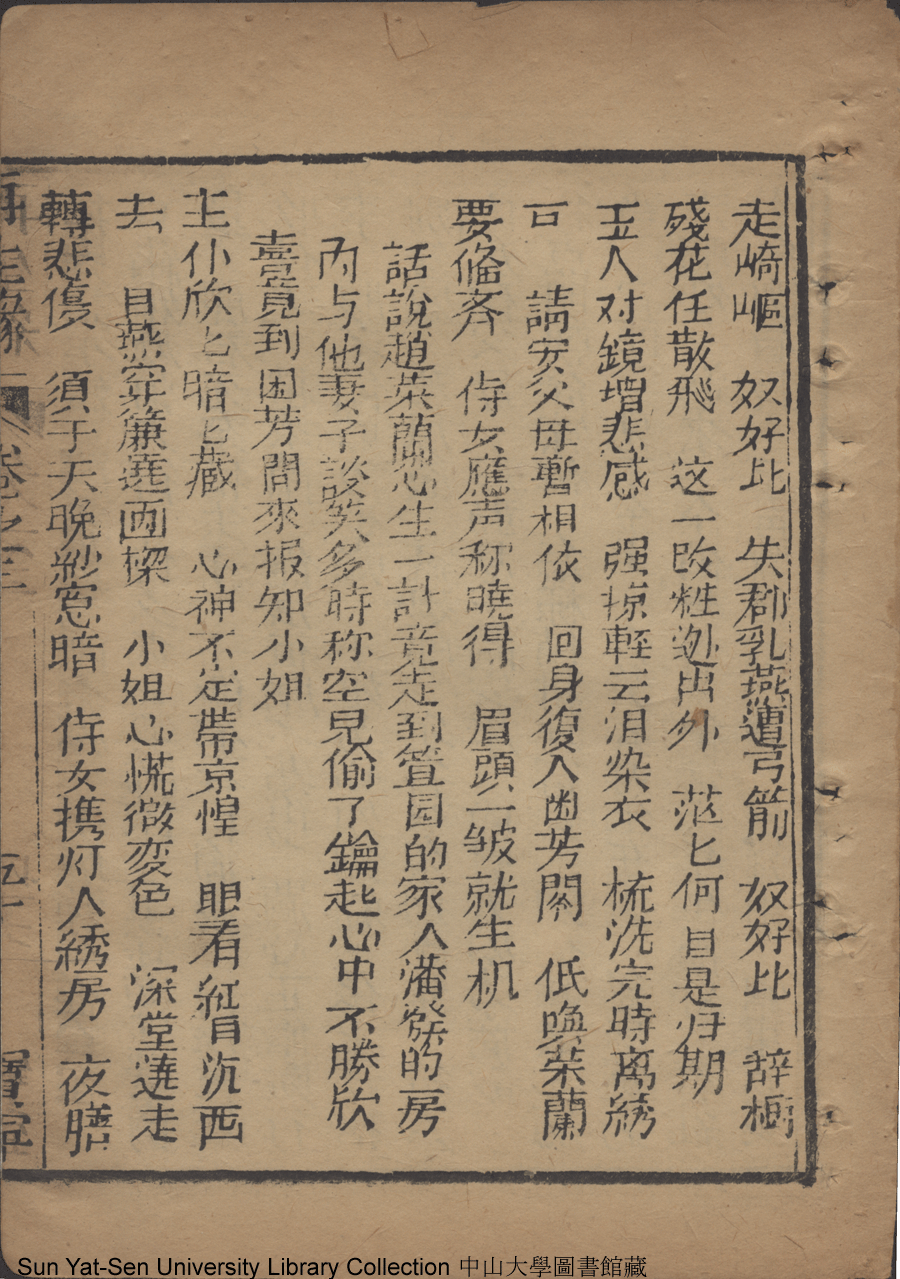 走崎嶇　奴好比　失群乳燕遭弓箭　奴好比　辞樹
殘花任散飛　这一改粧迯出外　茫匕何日是归期
玉人对鏡增悲感　强掠輕云泪染衣　梳洗完時离綉
請安父母暫相依　回身復入幽芳閣　低喚荣蘭
要俻斉　侍女應声称曉得　眉頭一皱就生机
話說趙荣蘭忽生一計竟走到管园的家人潘發的房
內与他妻子談笑多時称空見偷了鑰起心中不勝欣
喜竟到囦芳閣來报知小姐
主仆欣匕暗匕藏　心神不定帶京惶　眼看紅日沉西
去　目燕穿簾遶画樑　小姐心慌微变色　深堂莲走
轉悲傷　須于天晚紗窓暗　侍女携灯入綉房　夜膳
再生緣　卷之三　五十　寶寧
Sun Yat-Sen University Library Collection 中山大學圖書館藏